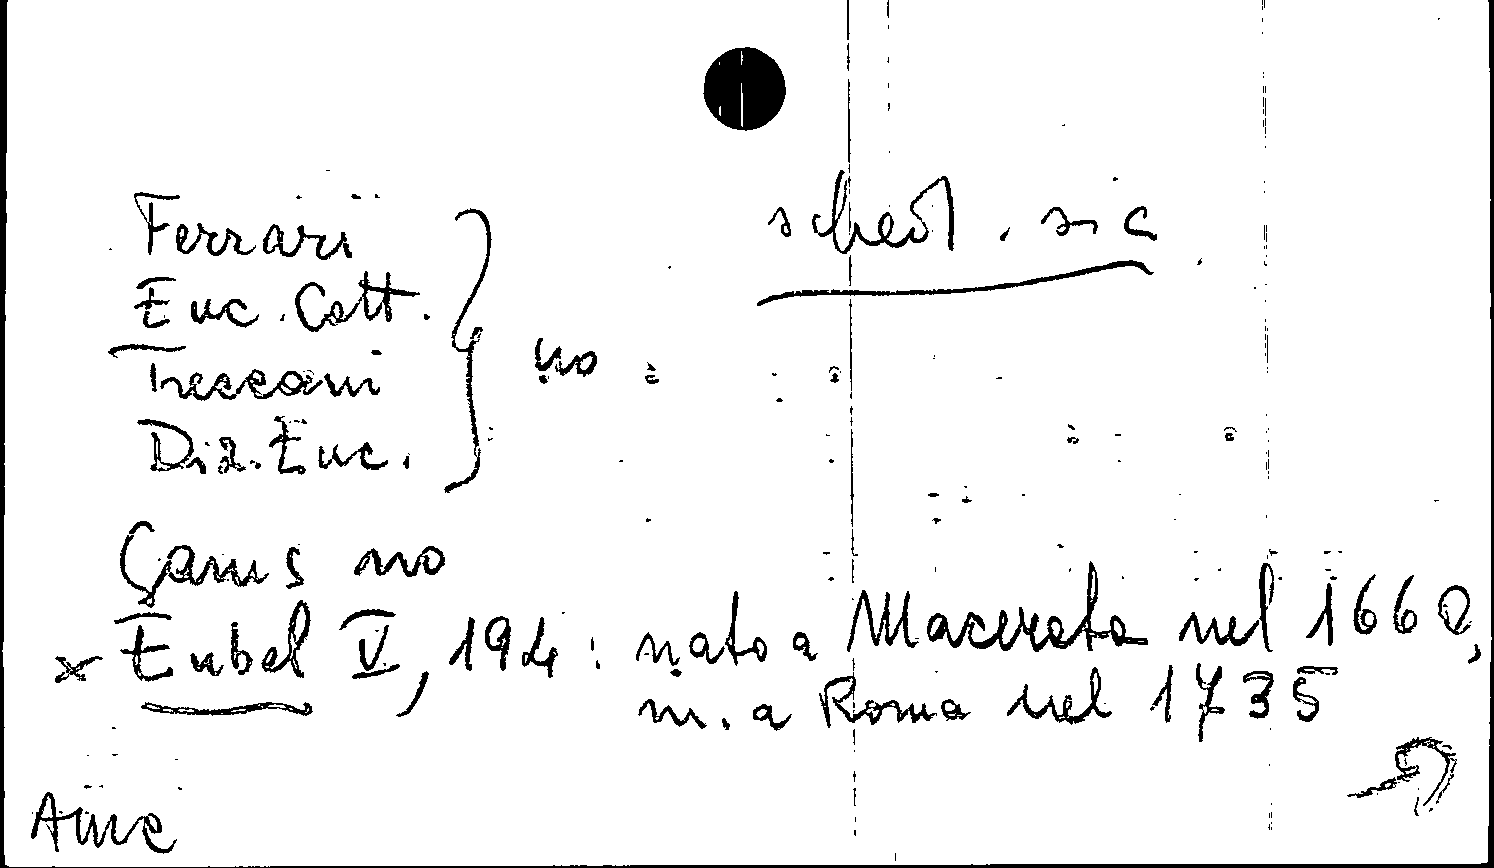 Ferrari
Enc. Catt.
Treccani
Diz. Enc.
no
sched. sic
Gams no
x Eubel V, 194: nato a Macerata nel 1660,
m. a Roma nel 1735